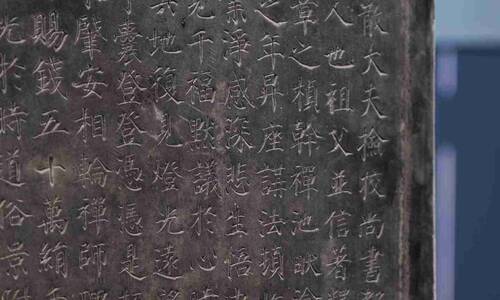 散大夫檢校尚書
人也祖父並信著
草之楨幹禪池畎
之年昇座講法頓
素淨感深悲生悟
千福默識於心時
其地復見燈光遠
囊登登憑憑是
肇安相輪禪師
賜錢五十萬絹
光於時道俗景附